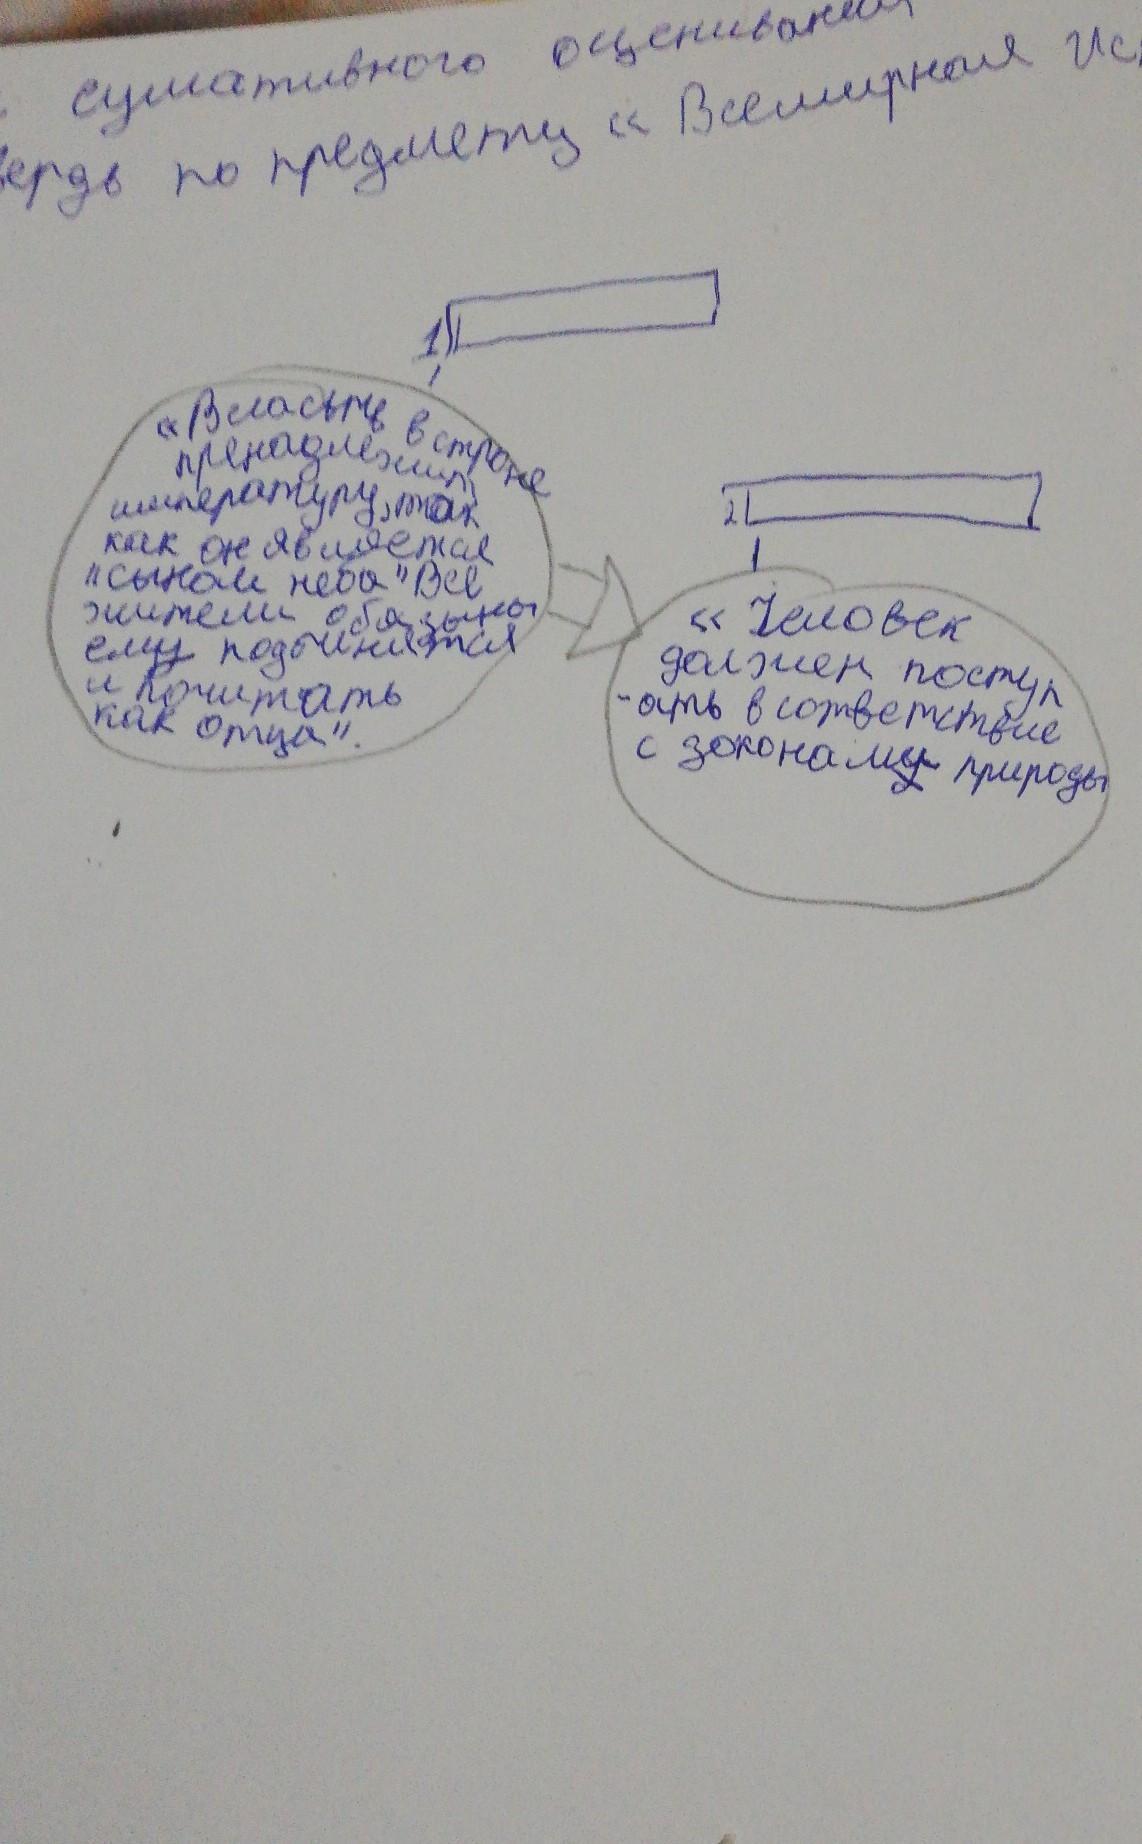 сумативного оценивания
по предмету « Всемирная Ис
1
« Власьть в строне
пренадлежит
импературу, так
как он является
"сыном неба" Все
жители обязыны
ему подчинятся
и почитать
как отца".
2
« Человек
должен поступ
-ать в сответствие
с законаму природы